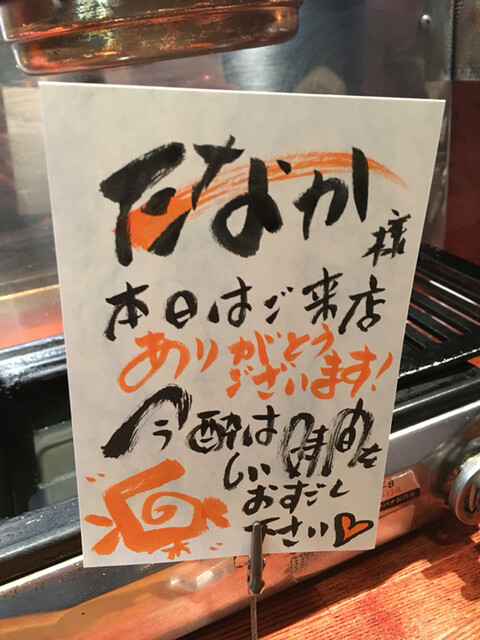 たなか
様
本日はご来店
ありがとう
ございます!
今酔は時間を
しい
おすごし
下さい